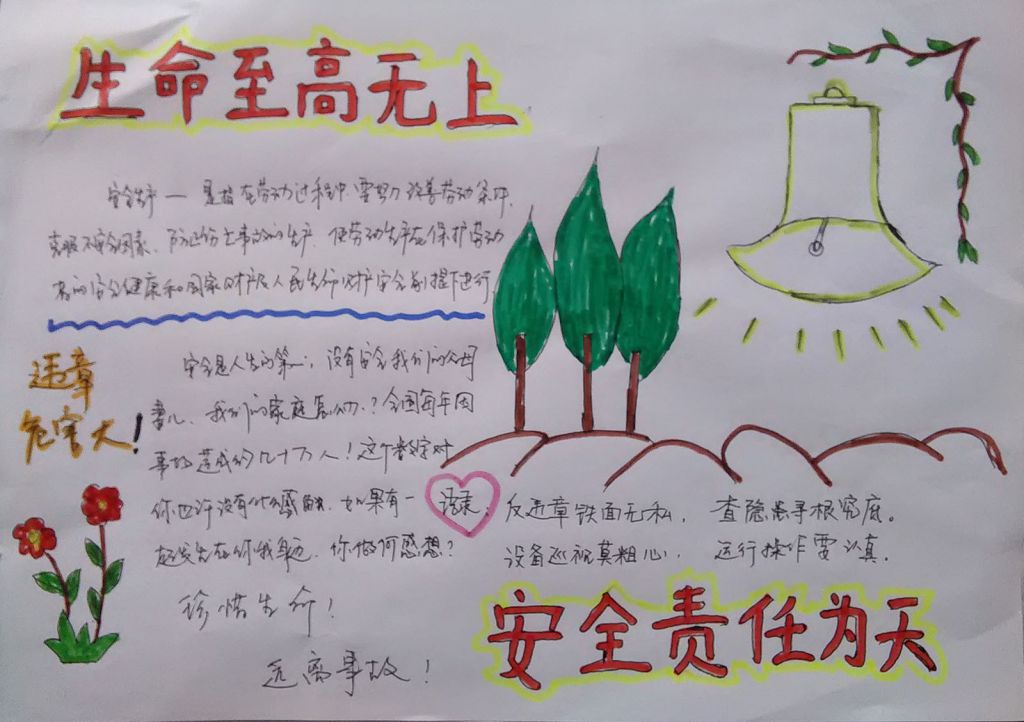 生命至高无上
安全生产——是指在劳动过程中,要努力改善劳动条件,
克服不安全因素,防止伤亡事故的生产,使劳动生产在保护劳动
者的安全健康和国家财产及人民生命财产安全前提下进行
违章
危害大!
安全是人生的第一,没有安全我们的父母
妻儿、我们的家庭怎么办?全国每年因
事故造成约几十万人!这个数字对
你也许没有什么感触,如果有一
起发生在你我身边,你做何感想?
珍惜生命!
远离事故!
语录:反违章铁面无私,查隐患寻根究底。
设备巡视莫粗心,运行操作要认真。
安全责任为天